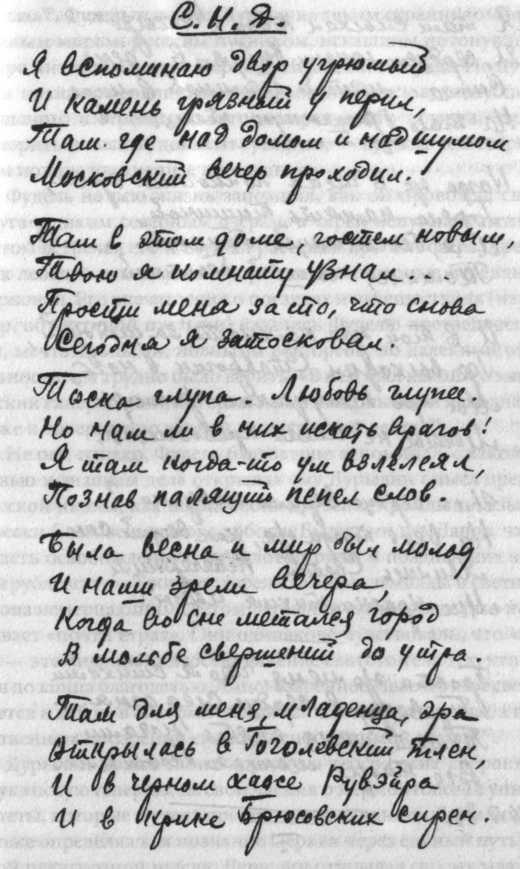 С. Н. Д.
Я вспоминаю двор угрюмый
И камень грязный у перил,
Там где над домом и над шумом
Московский вечер проходил.
Там в этом доме, гостем новым,
Твою я комнату узнал.
Прости меня за то, что снова
Сегодня я затосковал.
Тоска глупа. Любовь глупее.
Но нам ли в них искать врагов!
Я там когда-то ум взлелеял,
Познав палящий пепел слов.
Была весна и мир был молод
И наши зрели вечера,
Когда во сне метался город
В мольбе свершений до утра.
Там для меня, младенца, эра
Открылась в Гоголевский плен,
И в черном хаосе Рувэйра
И в крике Брюсовских сирен.